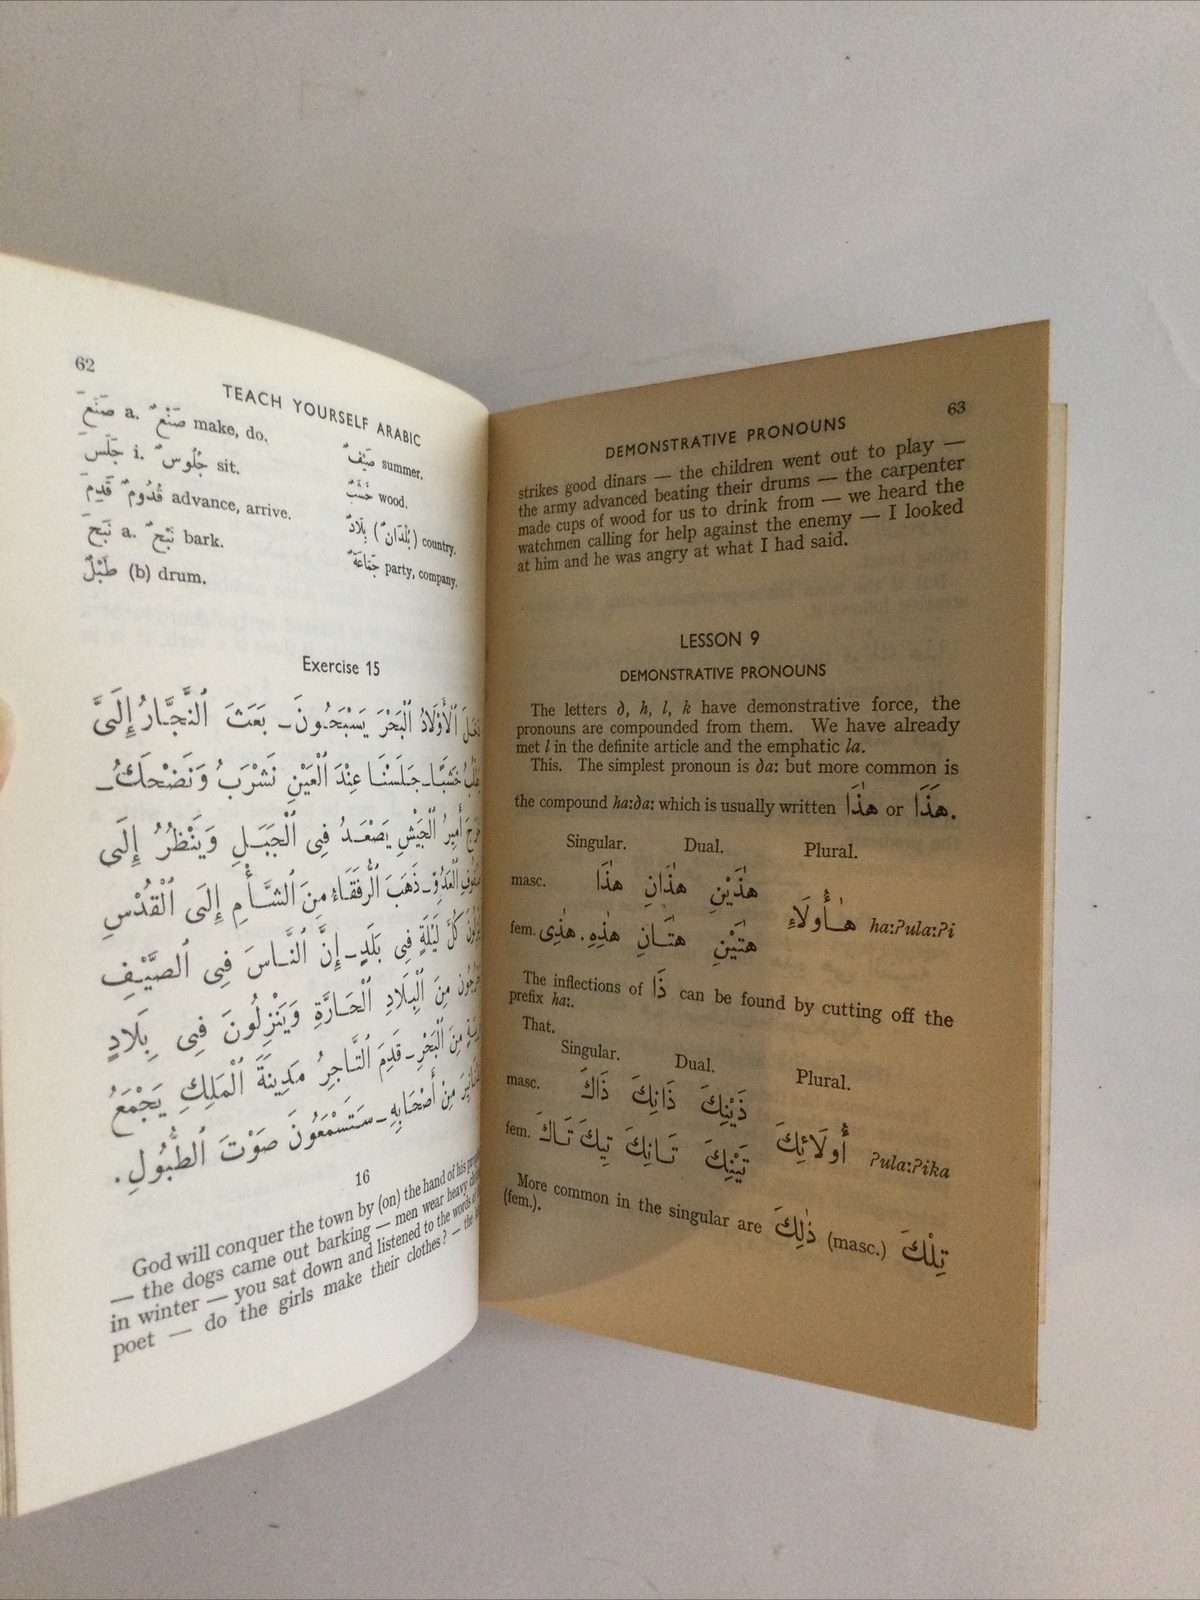 62
TEACH YOURSELF ARABIC
صَنَعَ a. صَنْعٌ make, do.
جَلَسَ i. جُلُوسٌ sit.
قَدِمَ قُدُومٌ advance, arrive.
نَبَحَ a. نَبْحٌ bark.
طَبْلٌ (b) drum.
صَيْفٌ summer.
خَشَبٌ wood.
بِلَادٌ (بُلْدَانٌ) country.
جَمَاعَةٌ party, company.
Exercise 15
ٱلْأَوْلَادُ ٱلْبَحْرَ يَسْبَحُونَ – بَعَثَ ٱلنَّجَّارُ إِلَىَّ
خَشَبًا – جَلَسْنَا عِنْدَ ٱلْعَيْنِ نَشْرَبُ وَنَضْحَكُ –
أَمِيرُ ٱلْجَيْشِ يَصْعَدُ فِى ٱلْجَبَلِ وَيَنْظُرُ إِلَى
ٱلْعَدُوِّ – ذَهَبَ ٱلرُّفَقَاءُ مِنَ ٱلشَّأْمِ إِلَى ٱلْقُدْسِ
كُلَّ لَيْلَةٍ فِى بَلَدٍ – إِنَّ ٱلنَّاسَ فِى ٱلصَّيْفِ
مِنَ ٱلْبِلَادِ ٱلْحَارَّةِ وَيَنْزِلُونَ فِى بِلَادٍ
مِنَ ٱلْبَحْرِ – قَدِمَ ٱلتَّاجِرُ مَدِينَةَ ٱلْمَلِكِ يَجْمَعُ
مِنْ أَصْحَابِهِ – سَتَسْمَعُونَ صَوْتَ ٱلطُّبُولِ.
16
God will conquer the town by (on) the hand of his
— the dogs came out barking — men wear heavy
in winter — you sat down and listened to the words of
poet — do the girls make their clothes? — the
63
DEMONSTRATIVE PRONOUNS
strikes good dinars — the children went out to play —
the army advanced beating their drums — the carpenter
made cups of wood for us to drink from — we heard the
watchmen calling for help against the enemy — I looked
at him and he was angry at what I had said.
LESSON 9
DEMONSTRATIVE PRONOUNS
The letters ð, h, l, k have demonstrative force, the
pronouns are compounded from them. We have already
met l in the definite article and the emphatic la.
This. The simplest pronoun is ða: but more common is
the compound ha:ða: which is usually written هٰذَا or هَذَا.
Singular. Dual. Plural.
masc. هٰذَا هٰذَانِ هٰذَيْنِ
هٰأُولَاءِ ha:ʔula:ʔi
fem. هٰذِى. هٰذِهِ هٰتَانِ هٰتَيْنِ
The inflections of ذَا can be found by cutting off the
prefix ha:.
That.
Singular. Dual. Plural.
masc. ذَاكَ ذَانِكَ ذَيْنِكَ
أُولَائِكَ ʔula:ʔika
fem. تَاكَ تِيكَ تَانِكَ تَيْنِكَ
More common in the singular are ذٰلِكَ (masc.) تِلْكَ
(fem.).